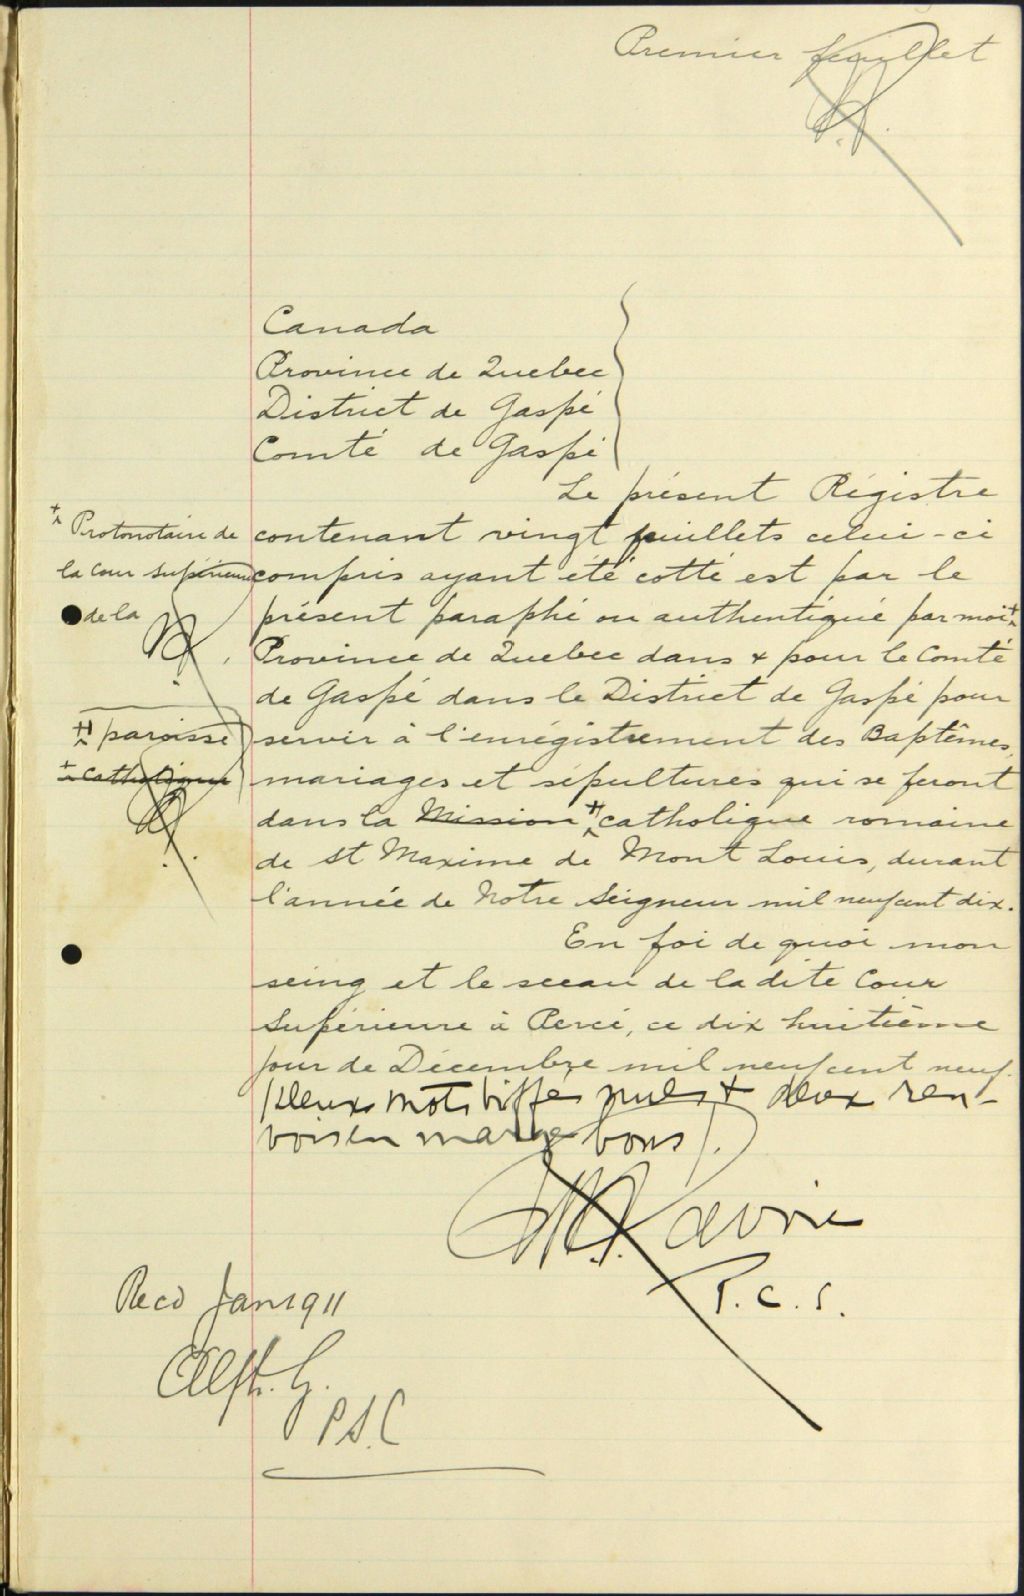 Premier feuillet
Canada
Province de Quebec
District de Gaspé
Comté de Gaspé
Le présent Régistre
contenant vingt feuillets celui-ci
compris ayant été cotté est par le
présent paraphé ou authentiqué par moi
Province de Quebec dans & pour le Comté
de Gaspé dans le District de Gaspé pour
servir à l'enrégistrement des Baptêmes,
mariages et sépultures qui se feront
dans la Mission catholique romaine
de St Maxime de Mont Louis, durant
l'année de Notre Seigneur mil neufcent dix.
En foi de quoi mon
seing et le sceau de la dite Cour
Supérieure à Percé, ce dix huitième
jour de Décembre mil neufcent neuf.
(deux mots biffés nuls & deux ren-
vois en marge bons).
Protonotaire de
la Cour Supérieure
de la
paroisse
catholique
Lavoie
P.C.S.
Recd Jan 1911
P.S.C